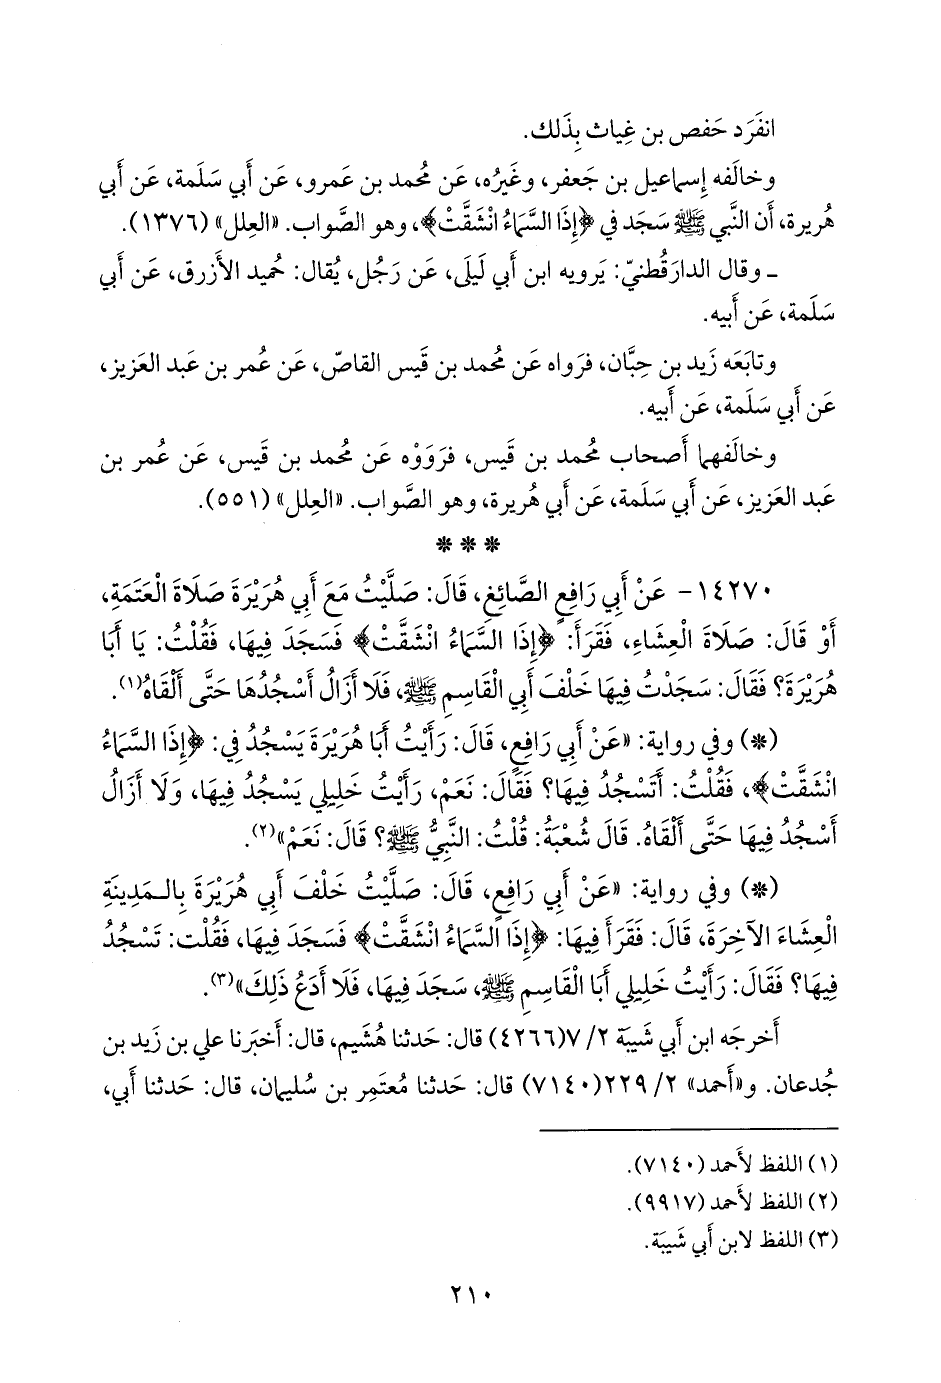 انفَرَد حَفص بن غِياث بِذَلك.
وخالَفه إِسماعيل بن جَعفر، وغَيرُه، عَن مُحمد بن عَمرو، عَن أَبي سَلَمة، عَن أَبي
هُريرة، أَن النَّبي ﷺ سَجَد في ﴿إِذَا السَّمَاءُ انْشَقَّتْ﴾، وهو الصَّواب. «العِلل» (١٣٧٦).
ـ وقال الدارَقُطنيّ: يَرويه ابن أَبي لَيلَى، عَن رَجُل، يُقال: حُميد الأَزرق، عَن أَبي
سَلَمة، عَن أَبيه.
وتابَعَه زَيد بن حِبَّان، فرَواه عَن مُحمد بن قَيس القاصّ، عَن عُمر بن عَبد العَزيز،
عَن أَبي سَلَمة، عَن أَبيه.
وخالَفهما أَصحاب مُحمد بن قَيس، فرَوَوْه عَن مُحمد بن قَيس، عَن عُمر بن
عَبد العَزيز، عَن أَبي سَلَمة، عَن أَبي هُريرة، وهو الصَّواب. «العِلل» (٥٥١).
* * *
١٤٢٧٠- عَنْ أَبِي رَافِعٍ الصَّائِغِ، قَالَ: صَلَّيْتُ مَعَ أَبِي هُرَيْرَةَ صَلَاةَ الْعَتَمَةِ،
أَوْ قَالَ: صَلَاةَ الْعِشَاءِ، فَقَرَأَ: ﴿إِذَا السَّمَاءُ انْشَقَّتْ﴾ فَسَجَدَ فِيهَا، فَقُلْتُ: يَا أَبَا
هُرَيْرَةَ؟ فَقَالَ: سَجَدْتُ فِيهَا خَلْفَ أَبِي الْقَاسِمِ ﷺ، فَلَا أَزَالُ أَسْجُدُهَا حَتَّى أَلْقَاهُ(١).
(*) وفي رواية: «عَنْ أَبِي رَافِعٍ، قَالَ: رَأَيْتُ أَبَا هُرَيْرَةَ يَسْجُدُ فِي: ﴿إِذَا السَّمَاءُ
انْشَقَّتْ﴾، فَقُلْتُ: أَتَسْجُدُ فِيهَا؟ فَقَالَ: نَعَمْ، رَأَيْتُ خَلِيلِي يَسْجُدُ فِيهَا، وَلَا أَزَالُ
أَسْجُدُ فِيهَا حَتَّى أَلْقَاهُ. قَالَ شُعْبَةُ: قُلْتُ: النَّبِيُّ ﷺ؟ قَالَ: نَعَمْ»(٢).
(*) وفي رواية: «عَنْ أَبِي رَافِعٍ، قَالَ: صَلَّيْتُ خَلْفَ أَبِي هُرَيْرَةَ بِالـمَدِينَةِ
الْعِشَاءَ الآخِرَةَ، قَالَ: فَقَرَأَ فِيهَا: ﴿إِذَا السَّمَاءُ انْشَقَّتْ﴾ فَسَجَدَ فِيهَا، فَقُلْت: تَسْجُدُ
فِيهَا؟ فَقَالَ: رَأَيْتُ خَلِيلِي أَبَا الْقَاسِمِ ﷺ، سَجَدَ فِيهَا، فَلَا أَدَعُ ذَلِكَ»(٣).
أَخرجَه ابن أَبي شَيبَة ٢/ ٧(٤٢٦٦) قال: حَدثنا هُشَيم، قال: أَخبَرنا علي بن زَيد بن
جُدعان. و«أَحمد» ٢/ ٢٢٩(٧١٤٠) قال: حَدثنا مُعتَمِر بن سُليمان، قال: حَدثنا أَبي،
(١) اللفظ لأَحمد (٧١٤٠).
(٢) اللفظ لأَحمد (٩٩١٧).
(٣) اللفظ لابن أَبي شَيبَة.
٢١٠